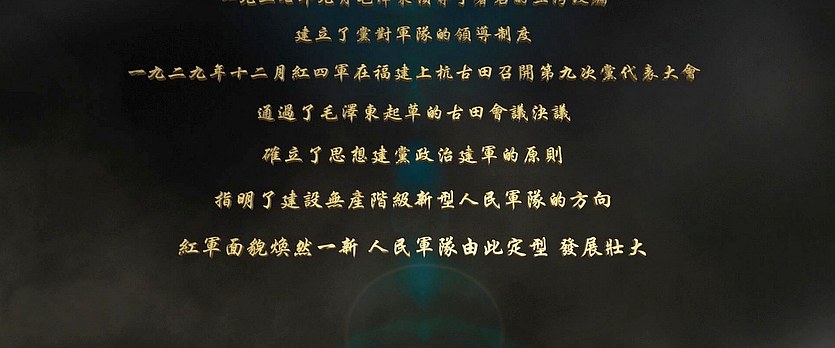 一九二七年九月毛澤東領導了著名的三灣改編
建立了黨對軍隊的領導制度
一九二九年十二月紅四軍在福建上杭古田召開第九次黨代表大會
通過了毛澤東起草的古田會議決議
確立了思想建黨政治建軍的原則
指明了建設無產階級新型人民軍隊的方向
紅軍面貌煥然一新 人民軍隊由此定型 發展壯大